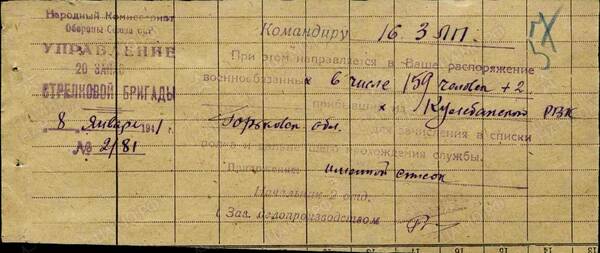 Народный Комиссариат
Обороны Союза ССР
УПРАВЛЕНИЕ
20 ЗАПАС
СТРЕЛКОВОЙ БРИГАДЫ
8 января 1941 г.
№ 2/81
Командиру 16. З ЛП.
При этом направляется в Ваше распоряжение
военнообязанных в числе 159 человек + 2
прибывших из Кулебакский РВК
Горьков обл. для зачисления в списки
полка и дальнейшего прохождения службы.
Приложение: именной список
Начальник 2 отд.
( Зав. делопроизводством